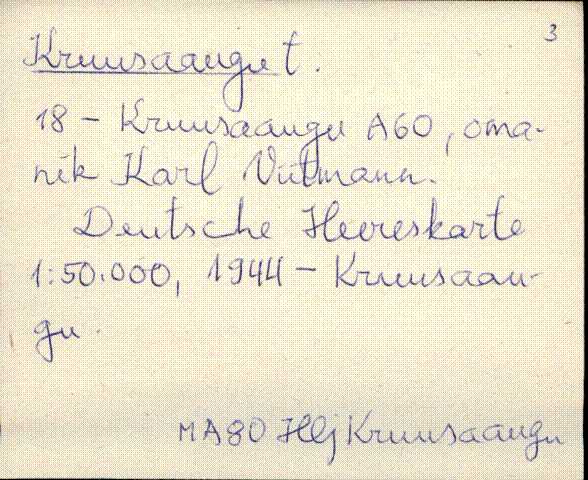 3
Kruusaaugu t.
18 - Kruusaaugu A60, oma-
nik Karl Viitmann.
Deutsche Heereskarte
1:50.000, 1944 - Kruusaau-
gu.
MA80 Hlj Kruusaaugu